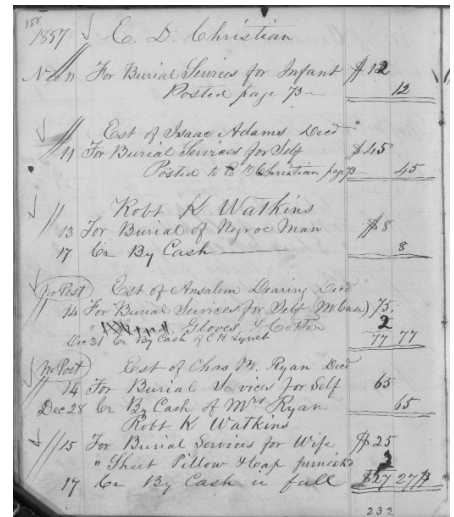 158
1857 E. D. Christian
Nov 11 For Burial Services for Infant $12
Posted page 73 12
Est of Isaac Adams Decd
11 For Burial Services for Self $45
Posted to E D Christian page 73 45
Robt K Watkins
13 For Burial of Negroe Man $8
17 Cr By Cash 8
No Post Est of Ansalem Dearing Decd
14 For Burial Services for Self (M Case) 75
" Gloves, & Cotton 2
Dec 31 Cr By Cash of C H Lynch 77 77
No Post Est of Chas. M. Ryan Decd
14 For Burial Services for Self 65
Dec 28 Cr By Cash of Mrs Ryan 65
Robt K Watkins
15 For Burial Services for Wife $25
" Sheet Pillow & Cap furnished 2
17 Cr By Cash in full $27 27
232